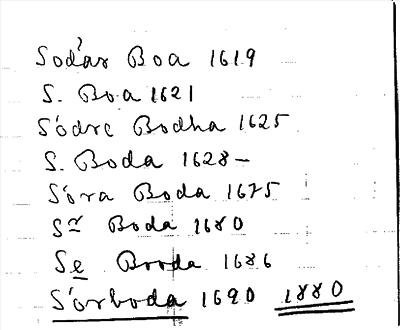 Södar Boa 1619
S. Boa 1621
Södre Bodha 1625
S. Boda 1628 –
Söra Boda 1675
Sre Boda 1680
Se Boda 1686
Sörboda 1690 1880